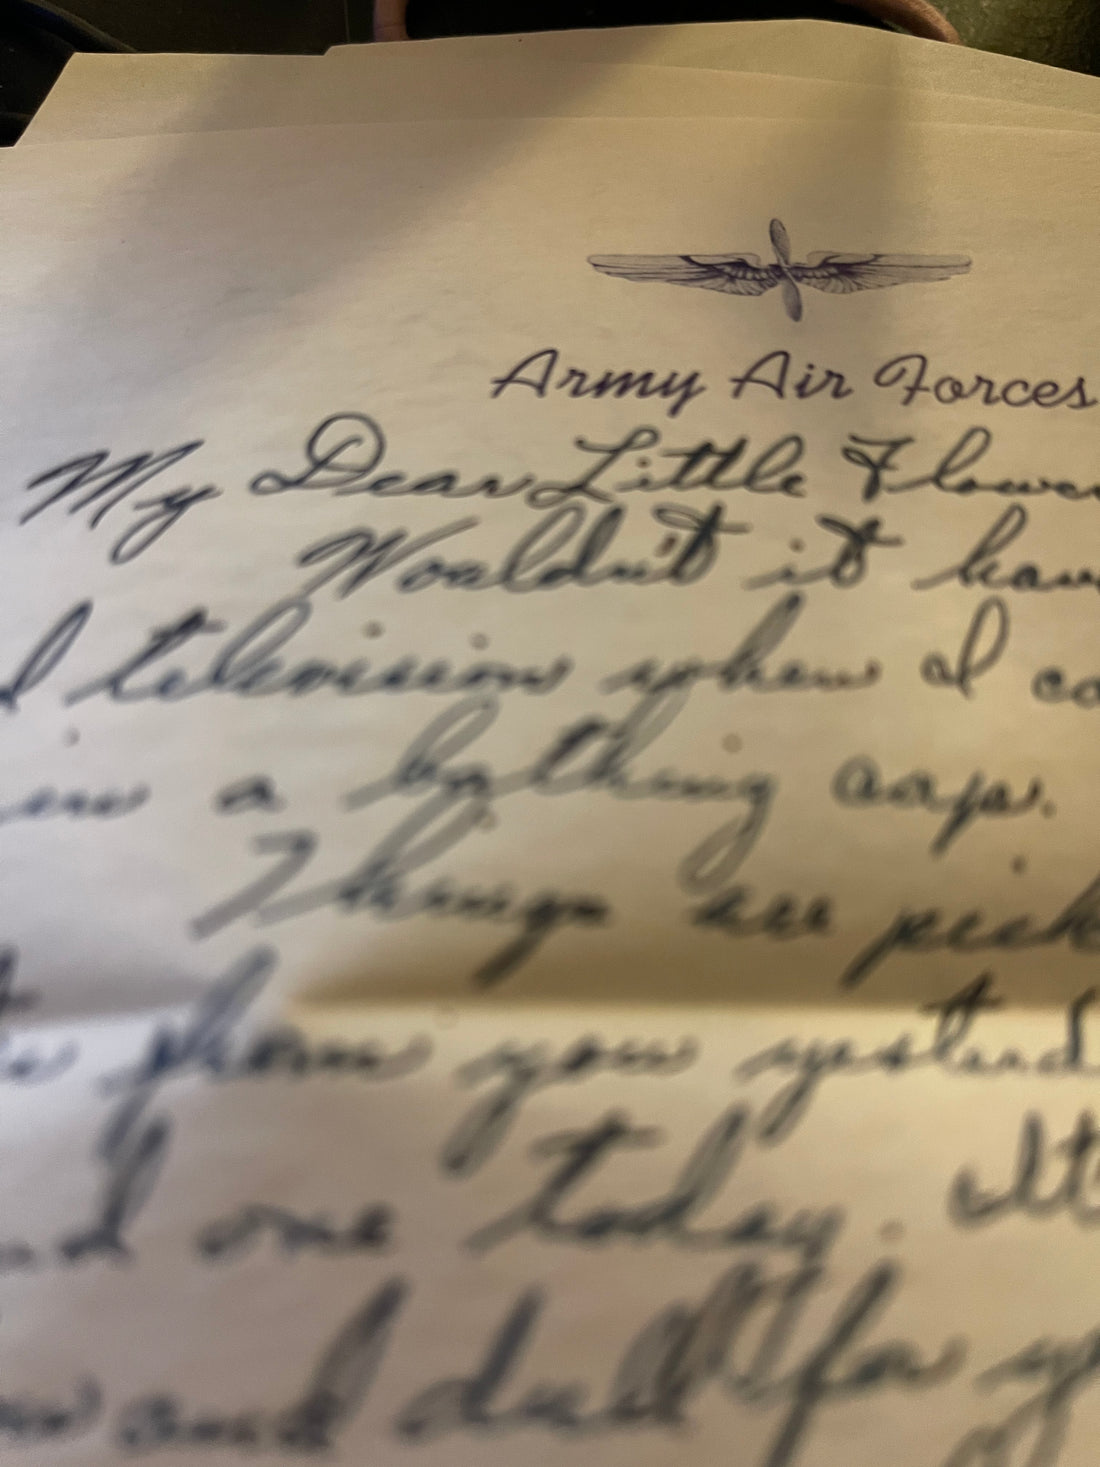 Army Air Forces
My Dear Little Flower
Wouldn't it have
television when I
in a bathing cap.
Things are
phone you yesterd
one today. It
and dull for